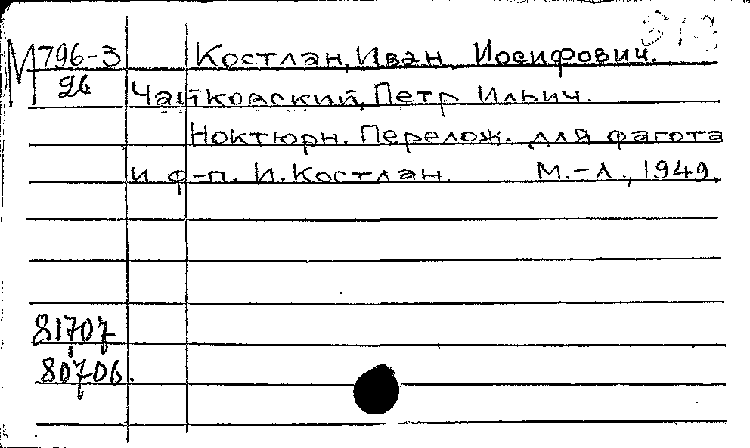 М 796-3 Костлан, Иван Иосифович.
96 Чайковский, Петр Ильич.
Ноктюрн. Перелож. для фагота
и ф-п. И. Костлан. М.-Л., 1949.
81707
80706.